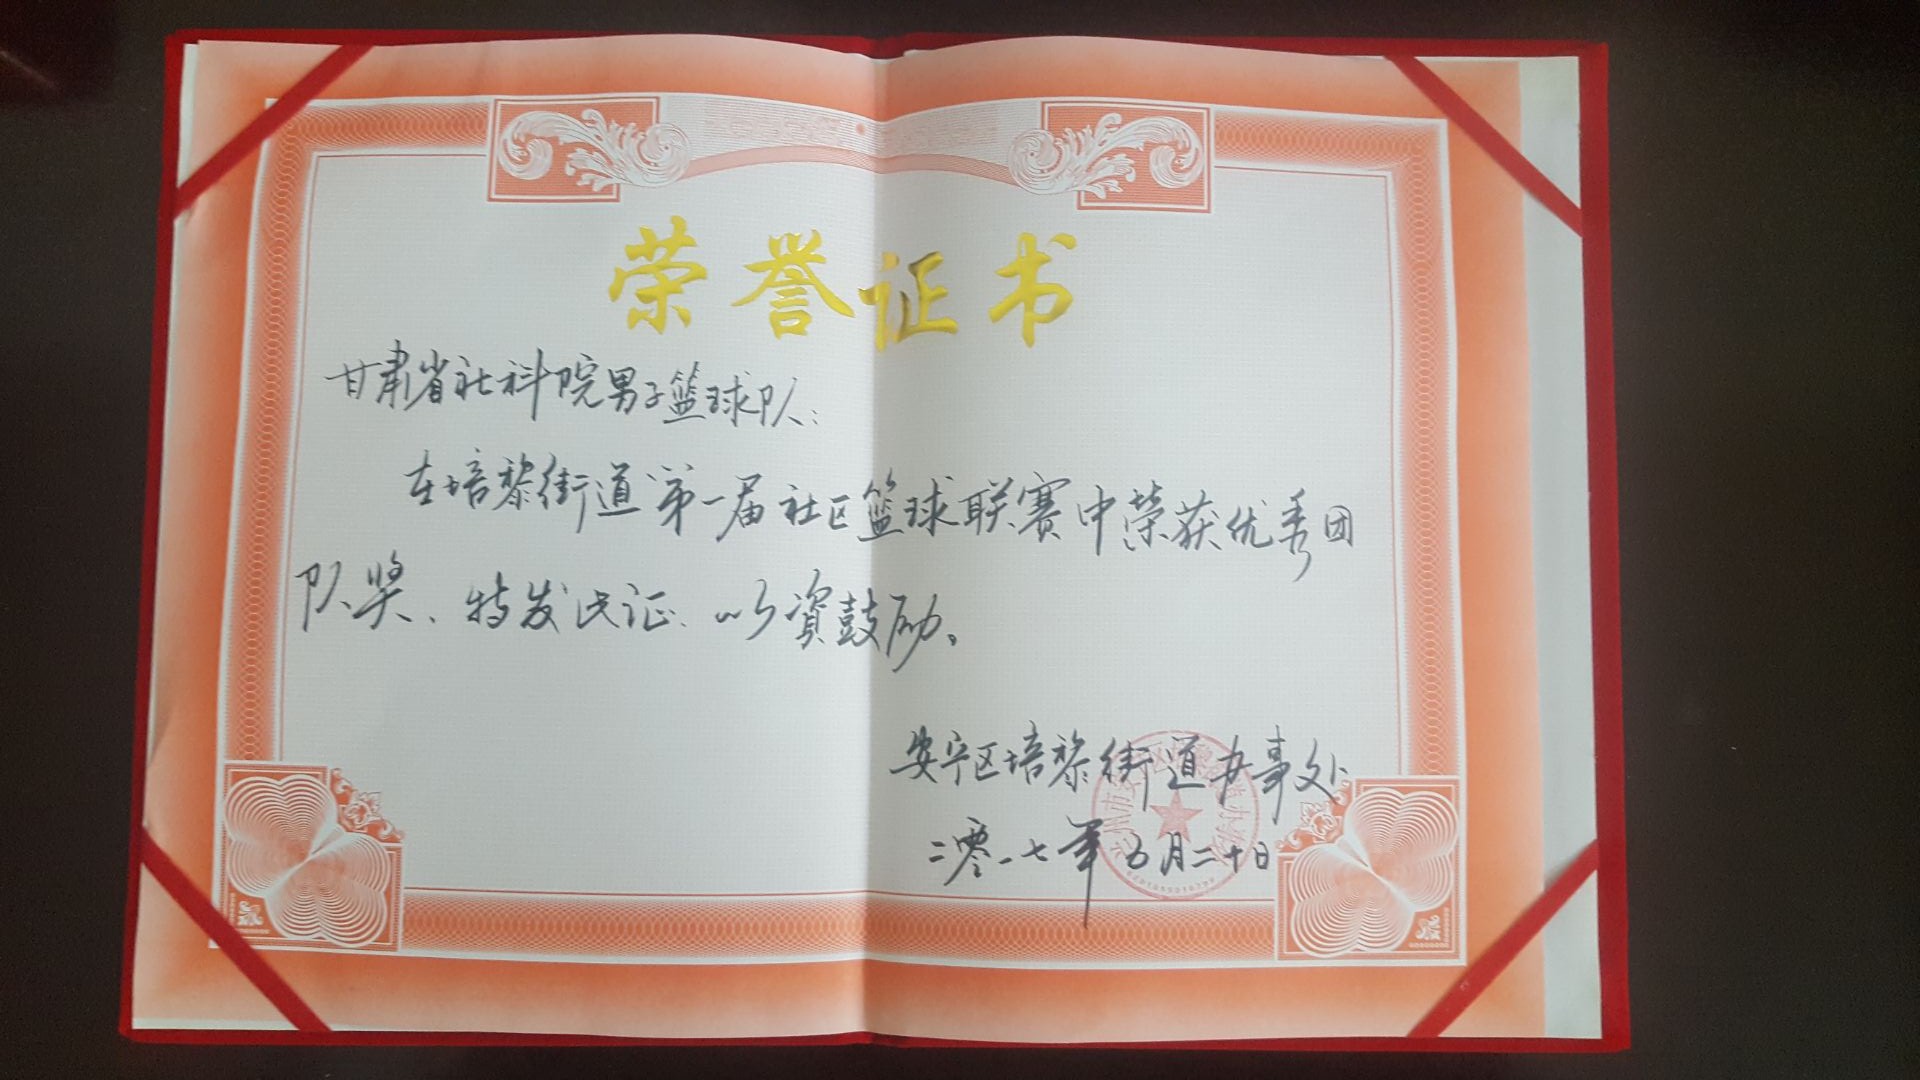 荣誉证书
甘肃省社科院男子篮球队：
在培黎街道第一届社区篮球联赛中荣获优秀团
队奖、特发此证、以资鼓励。
安宁区培黎街道办事处
二零一七年五月二十日